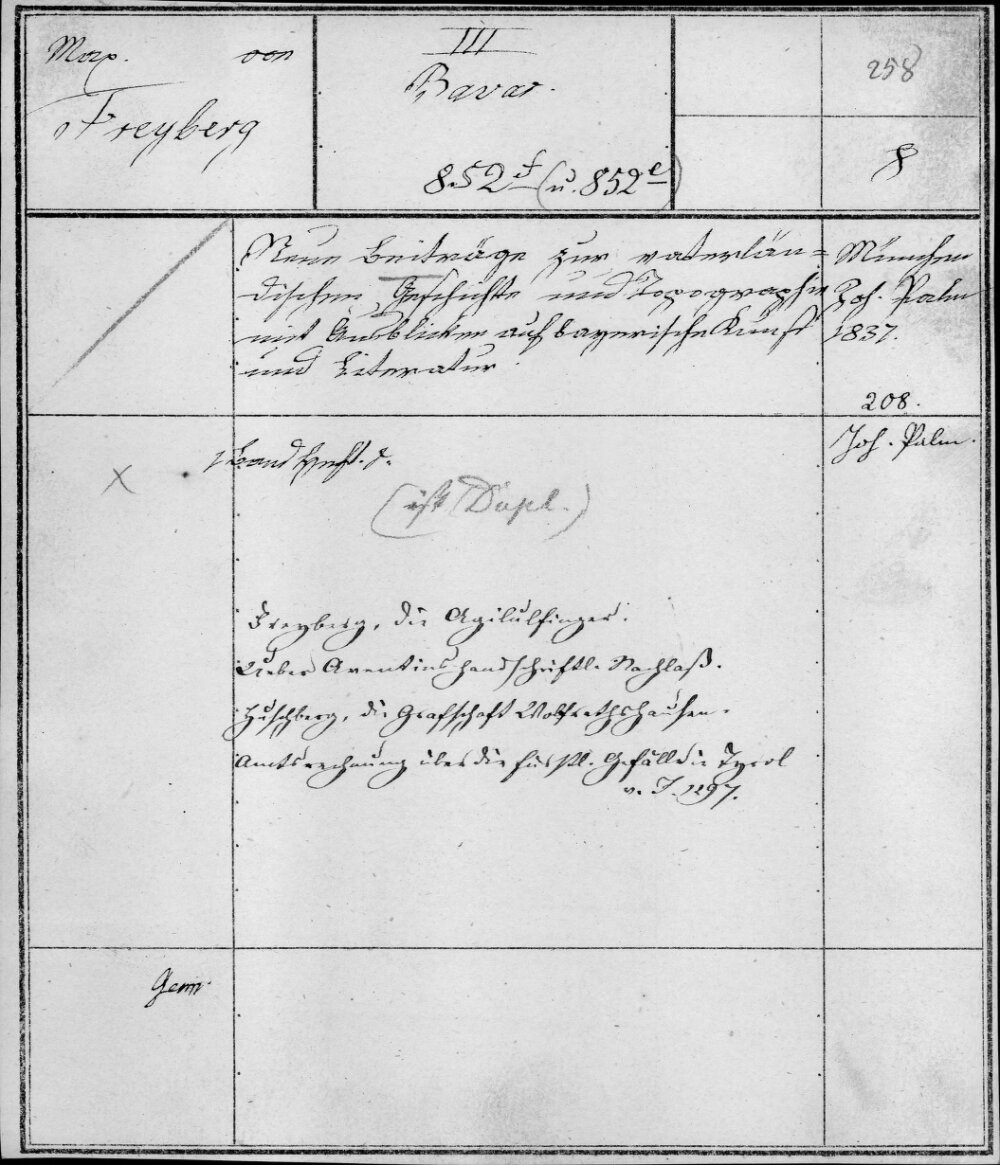 Max. von
Freyberg
III
Bavar.
852f (u. 852e)
258
8
Neue Beiträge zur vaterlän=
dischen Geschichte und Topographie
mit Ausblicken auf bayerische Kunst
und Literatur
München
Joh. Palm
1837.
208.
1 Band Heft. 1.
Joh. Palm.
(ist Dupl.)
Freyberg, die Agilulfinger.
Ueber Aventins handschriftl. Nachlaß.
Huschberg, die Grafschaft Wolfrathshausen.
Amtsrechnung über die fürstl. Gefäll die Tyrol
v. J. 1297.
Germ.